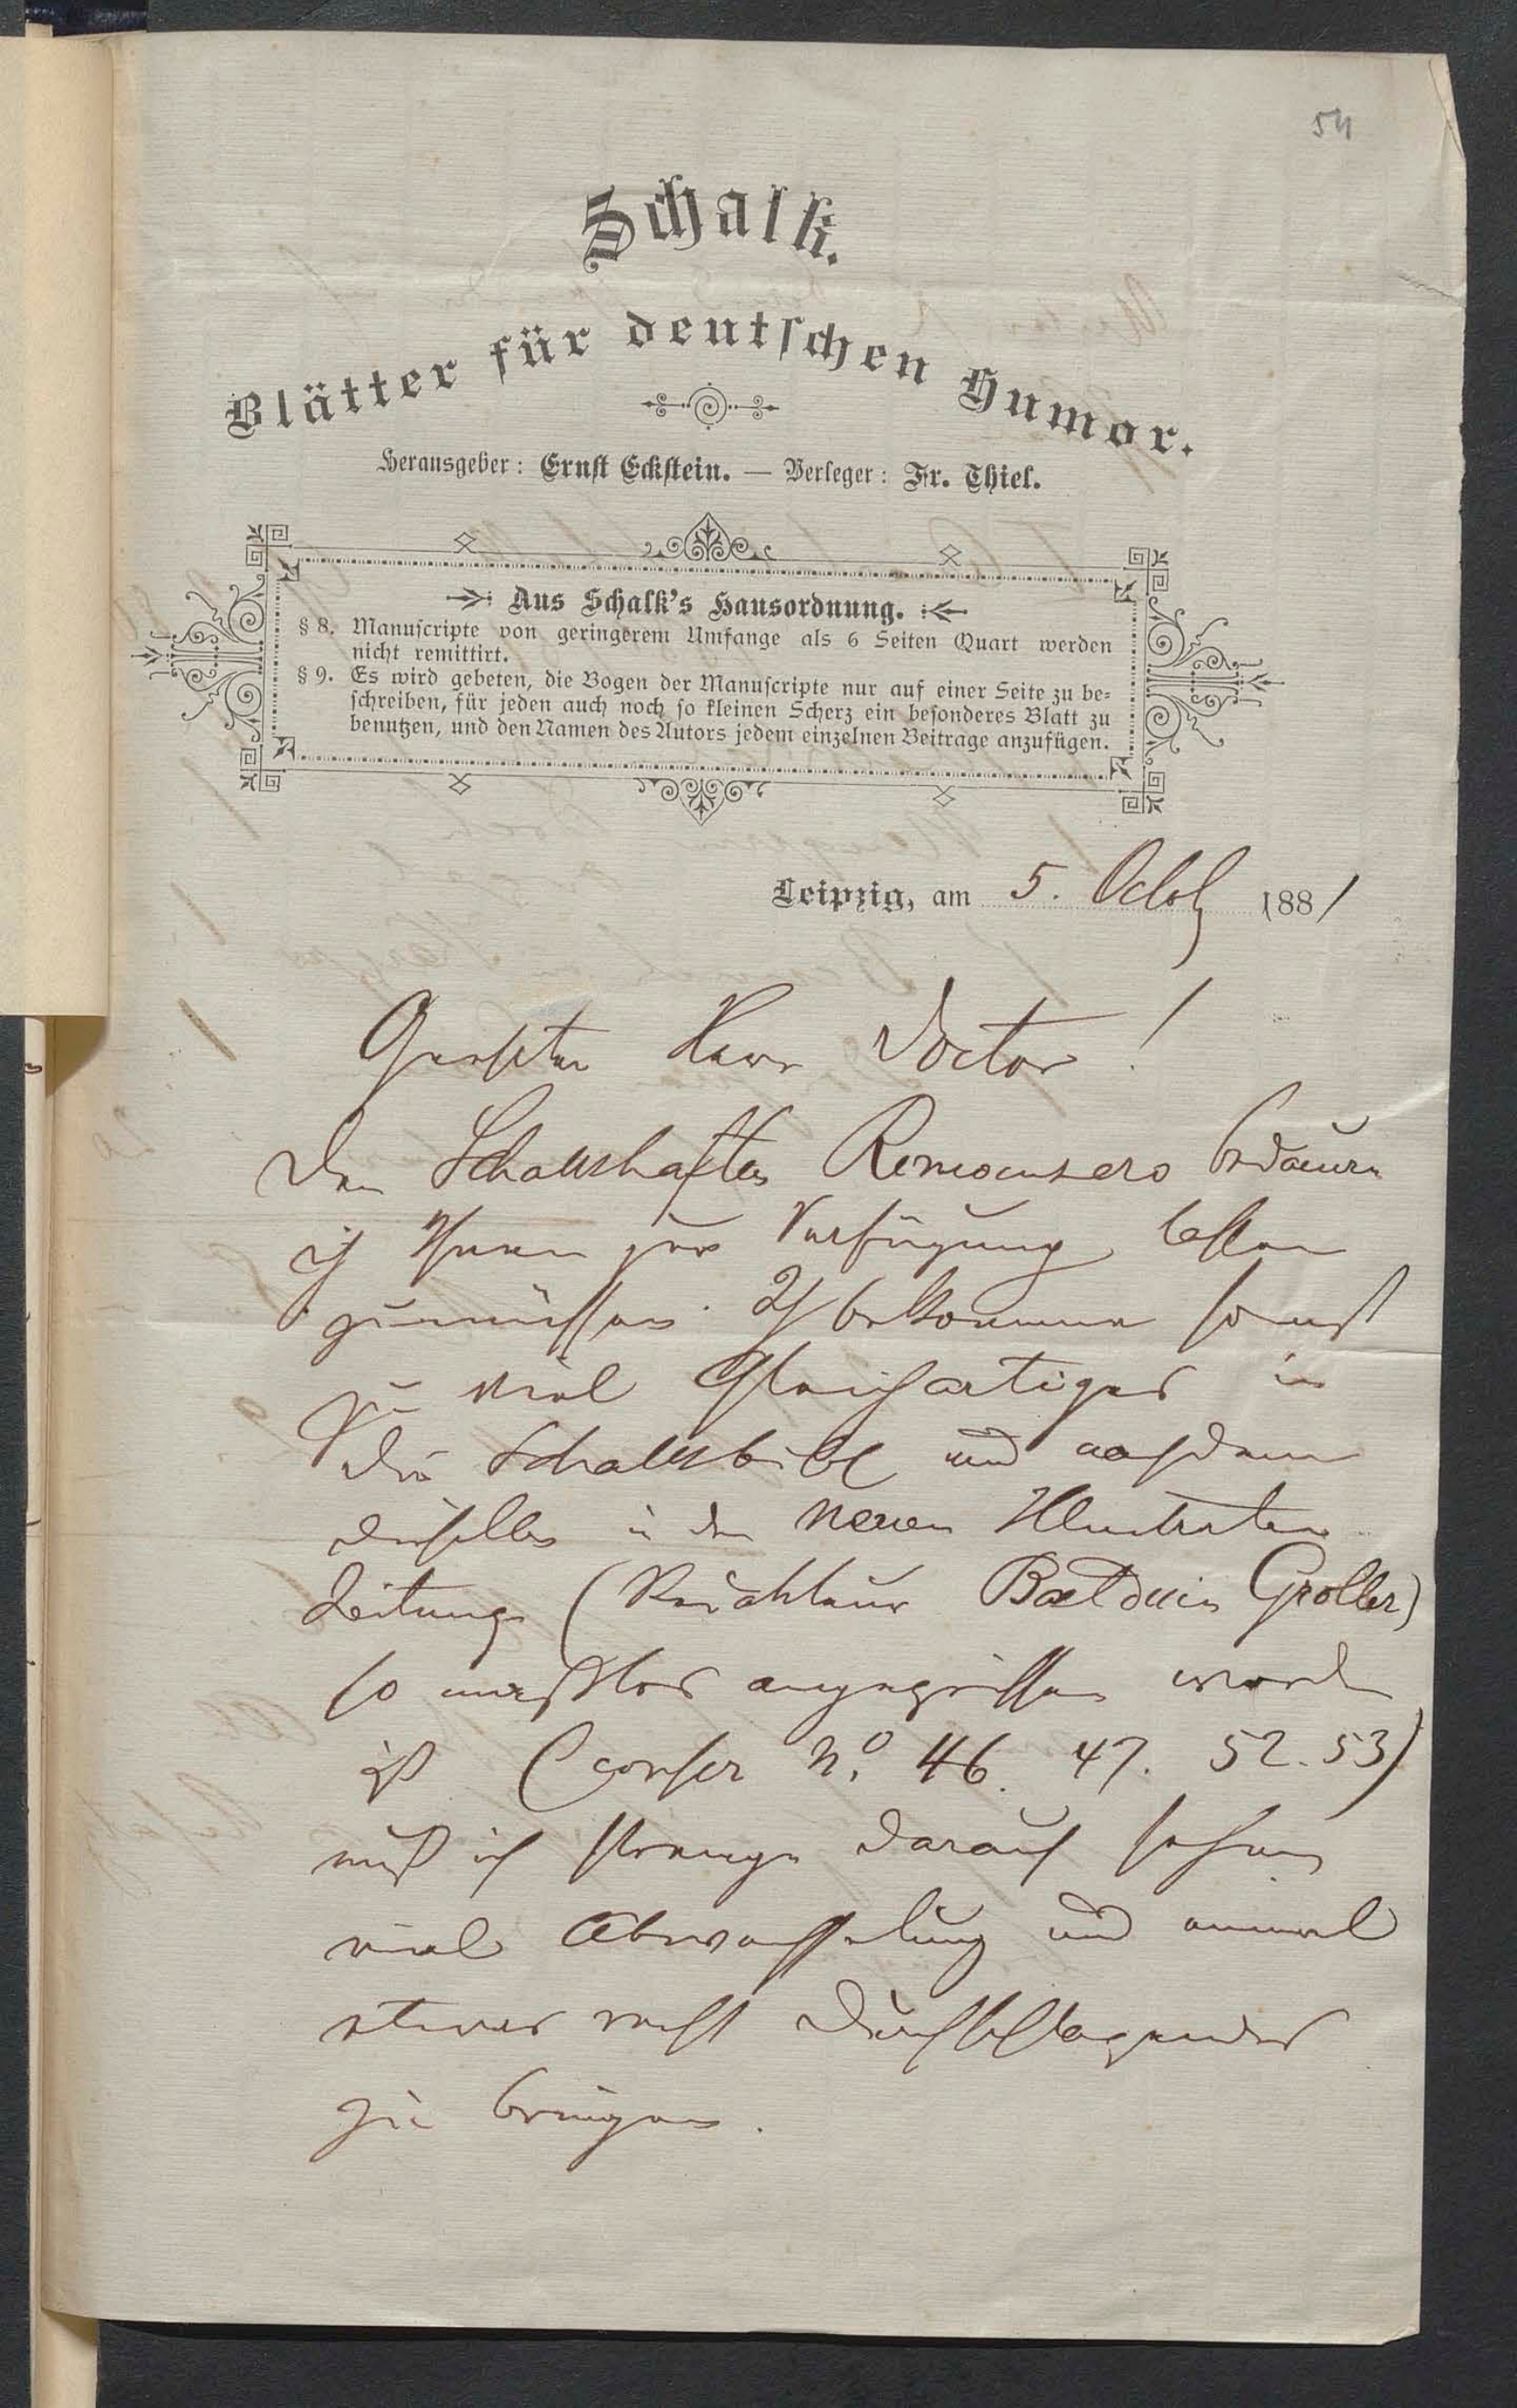 54
Schalk.
Blätter für deutschen Humor.
Herausgeber: Ernst Eckstein. — Verleger: Fr. Thiel.
Aus Schalk's Hausordnung.
§ 8. Manuscripte von geringerem Umfange als 6 Seiten Quart werden
nicht remittirt.
§ 9. Es wird gebeten, die Bogen der Manuscripte nur auf einer Seite zu be-
schreiben, für jeden auch noch so kleinen Scherz ein besonderes Blatt zu
benutzen, und den Namen des Autors jedem einzelnen Beitrage anzufügen.
Leipzig, am 5. Octob 1881
Geehrter Herr Doctor!
Den Schalkshaften Romanzero bedaure
ich Ihnen zur Verfügung stellen
zu müssen. Ich bekomme sonst
zu viel Gleichartiges in
die Schalksbibl und nachdem
dieselbe in der Neuen Illustrirten
Zeitung (Redakteur Balduin Groller)
so maßlos angegriffen worden
ist (confer No. 46. 47. 52. 53)
muß ich strenge darauf sehen
viel Abwechselung und einmal
etwas recht Durchschlagendes
zu bringen.